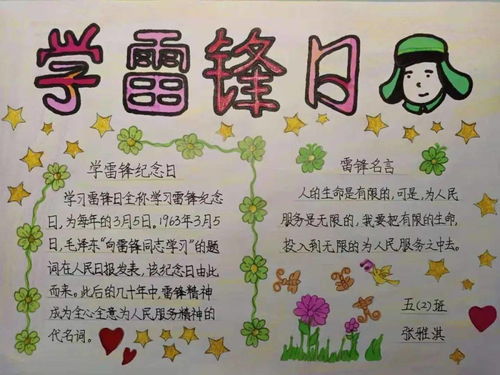 学雷锋日
学雷锋纪念日
学习雷锋日全称学习雷锋纪念
日,为每年的3月5日。1963年3月5
日,毛泽东“向雷锋同志学习”的题
词在人民日报发表,该纪念日由此
而来。此后的几十年中,雷锋精神
成为全心全意为人民服务精神的
代名词。
雷锋名言
人的生命是有限的,可是,为人民
服务是无限的,我要把有限的生命,
投入到无限的为人民服务之中去。
五(2)班
张雅淇